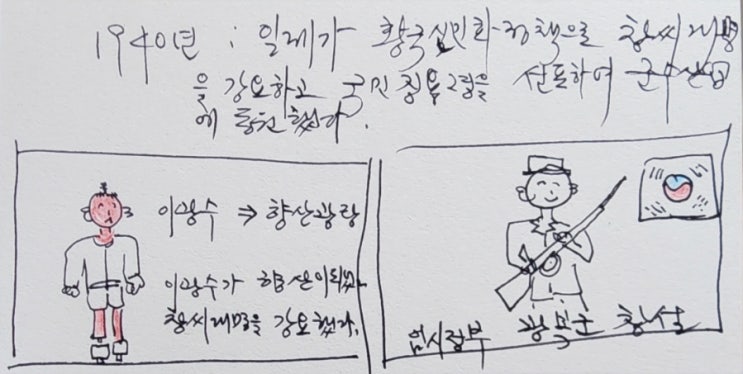 1940년 : 일제가 황국신민화 정책으로 창씨개명
을 강요하고 국민징용령을 선포하여 군수산업
에 동원했다.
이광수 ⇒ 향산광랑
이광수가 향산이되었다.
창씨개명을 강요했다.
임시정부 광복군 창설